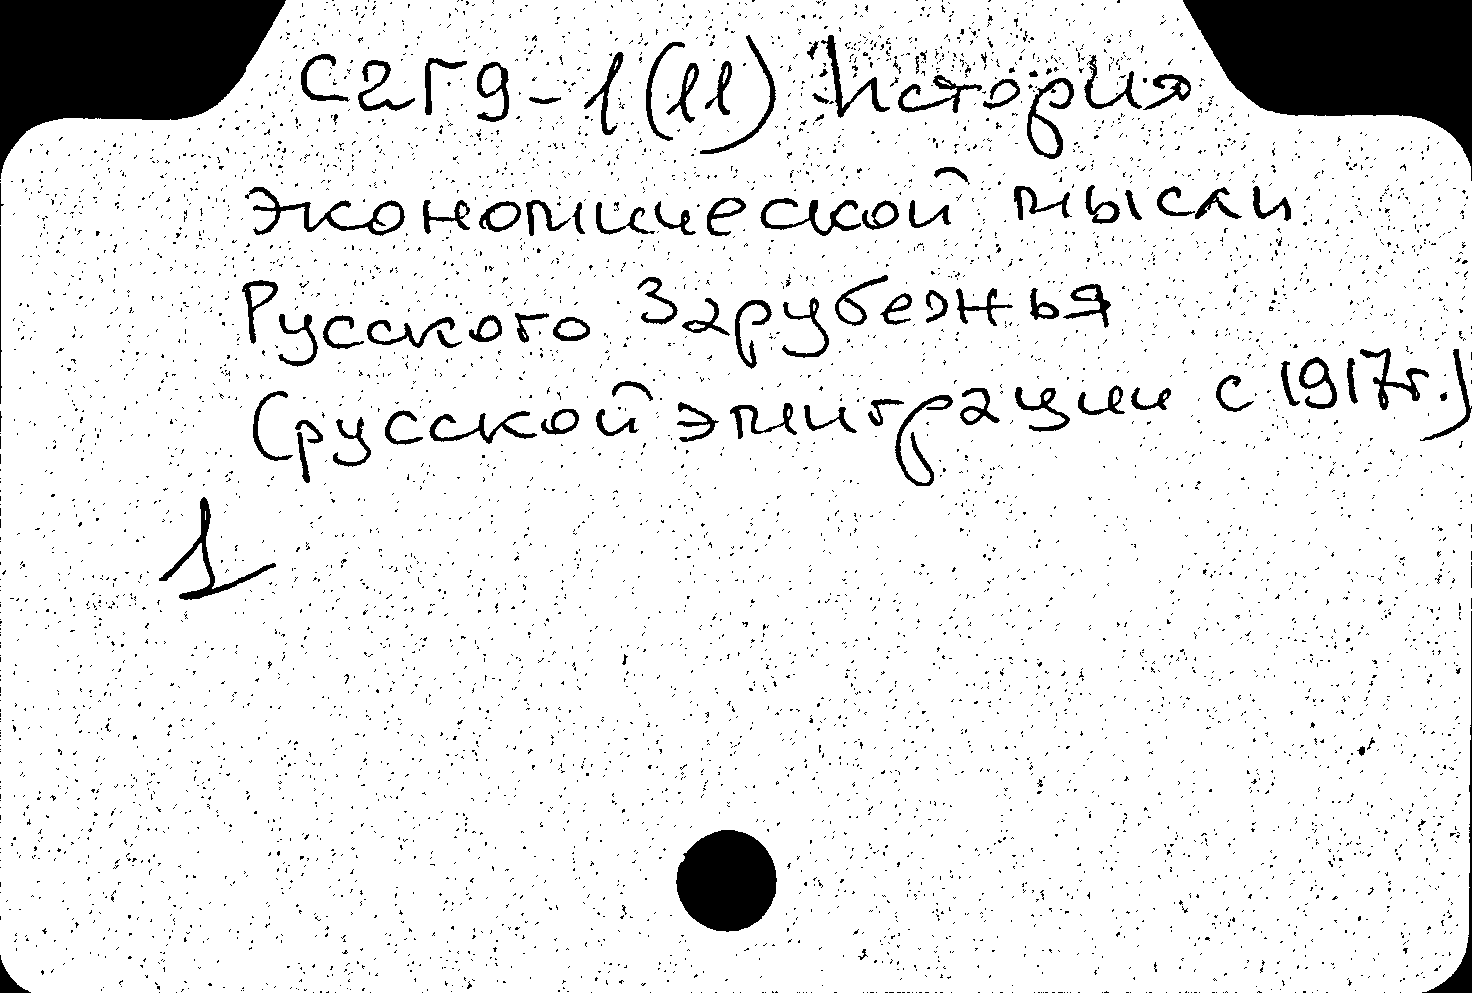 С2Г9-1(11) История
экономической мысли
Русского Зарубежья
(русской эмиграции с 1917г.)
1